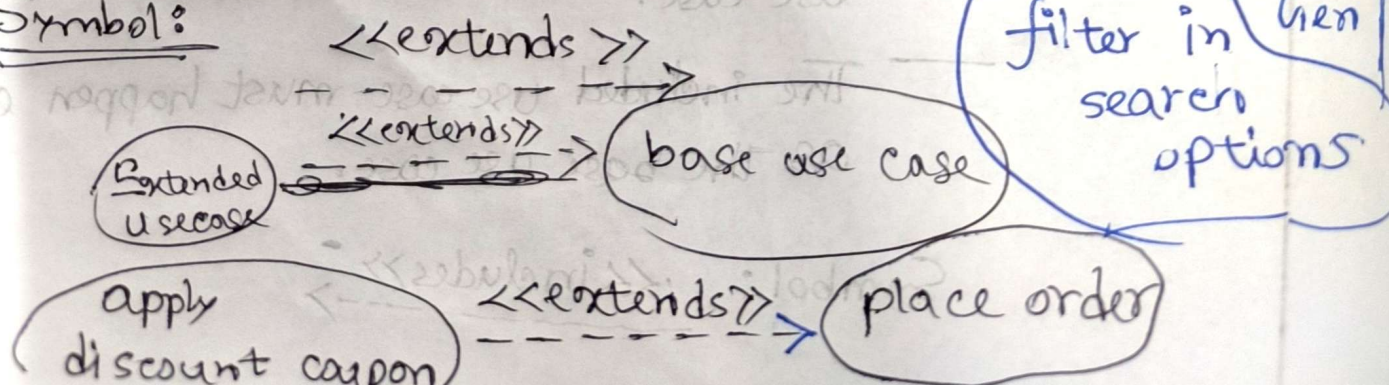 Symbol:
<<extends>>
<<extends>>
Extended
usecase
base use case
filter in
search
options
apply
discount coupon
<<extends>>
place order